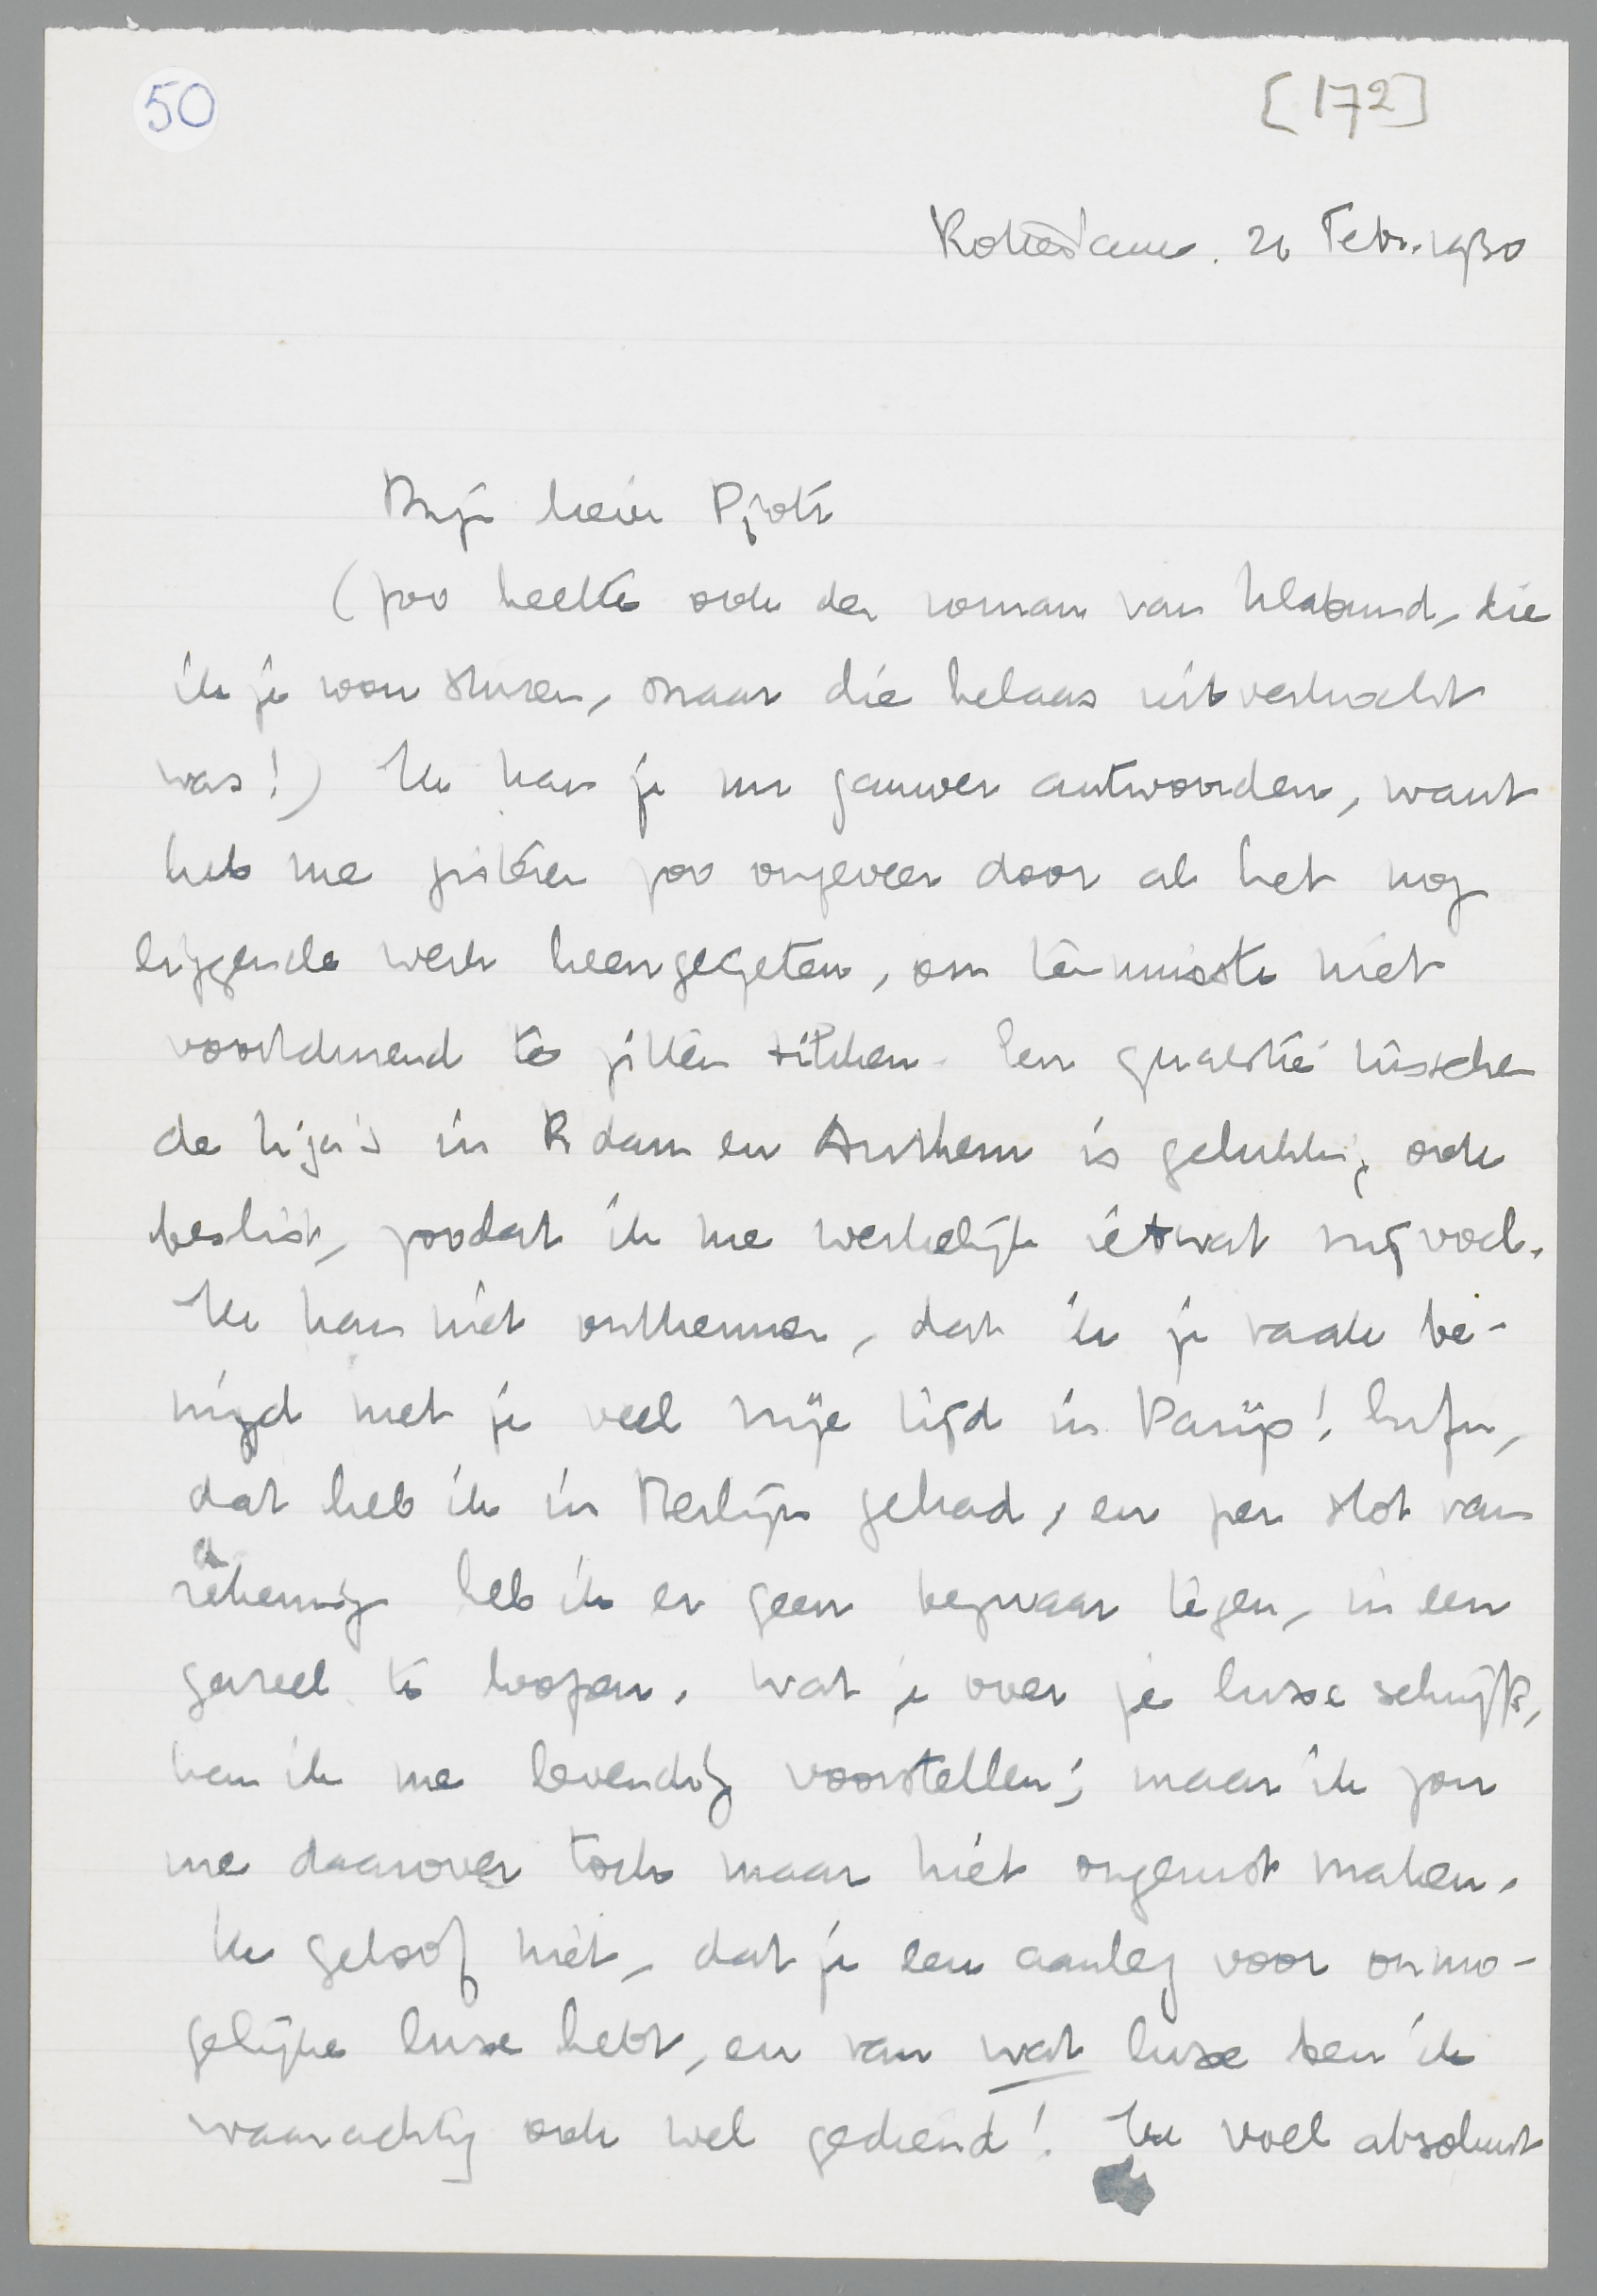 50
[172]
Rotterdam. 26 Febr. 1930
Mijn lieve Pjotr
(zoo heette ook de roman van Klabund, die
ik je wou sturen, maar die helaas uitverkocht
was!) Ik kan je nu gauwer antwoorden, want
heb me gisteren zoo ongeveer door al het nog
liggende werk heengegeten, om tenminste niet
voortdurend te zitten tikken. Een quaestie tusschen
de hja's in R'dam en Arnhem is gelukkig ook
beslist, zoodat ik me werkelijk ietwat vrij voel.
Ik kan niet ontkennen, dat ik je vaak be-
nijd met je veel vrije tijd in Parijs! Enfin,
dat heb ik in Berlijn gehad, en per slot van
rekening heb ik er geen bezwaar tegen, in een
gareel te loopen. Wat je over je luxe schrijft,
kan ik me levendig voorstellen; maar ik zou
me daarover toch maar niet ongerust maken.
Ik geloof niet, dat je een aanleg voor onmo-
gelijke luxe hebt, en van wat luxe ben ik
waarachtig ook wel gediend! Ik voel absoluut